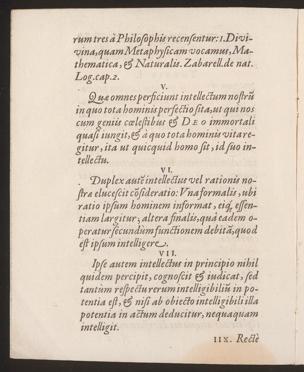 rum tres à Philosophis recensentur: 1. Divi-
vina, quam Metaphysicam vocamus, Ma-
thematica, & Naturalis. Zabarell. de nat.
Log. cap. 2.
V.
Quæ omnes perficiunt intellectum nostrū
in quo tota hominis perfectio sita, ut qui nos
cum geniis cœlestibus & DEO immortali
quasi jungit, & à quo tota hominis vita re-
gitur, ita ut quicquid homo sit, id suo in-
tellectu.
VI.
Duplex autē intellectus vel rationis no-
stra elucescit cōsideratio: Vna formalis, ubi
ratio ipsum hominem informat, eiq́; essen-
tiam largitur, altera finalis, quâ eadem o-
peratur secundùm functionem debitā, quod
est ipsum intelligere.
VII.
Ipse autem intellectus in principio nihil
quidem percipit, cognoscit & judicat, sed
tantùm respectu rerum intelligibiliū in po-
tentia est, & nisi ab obiecto intelligibili illa
potentia in actum deducitur, nequaquam
intelligit.
IIX. Rectè